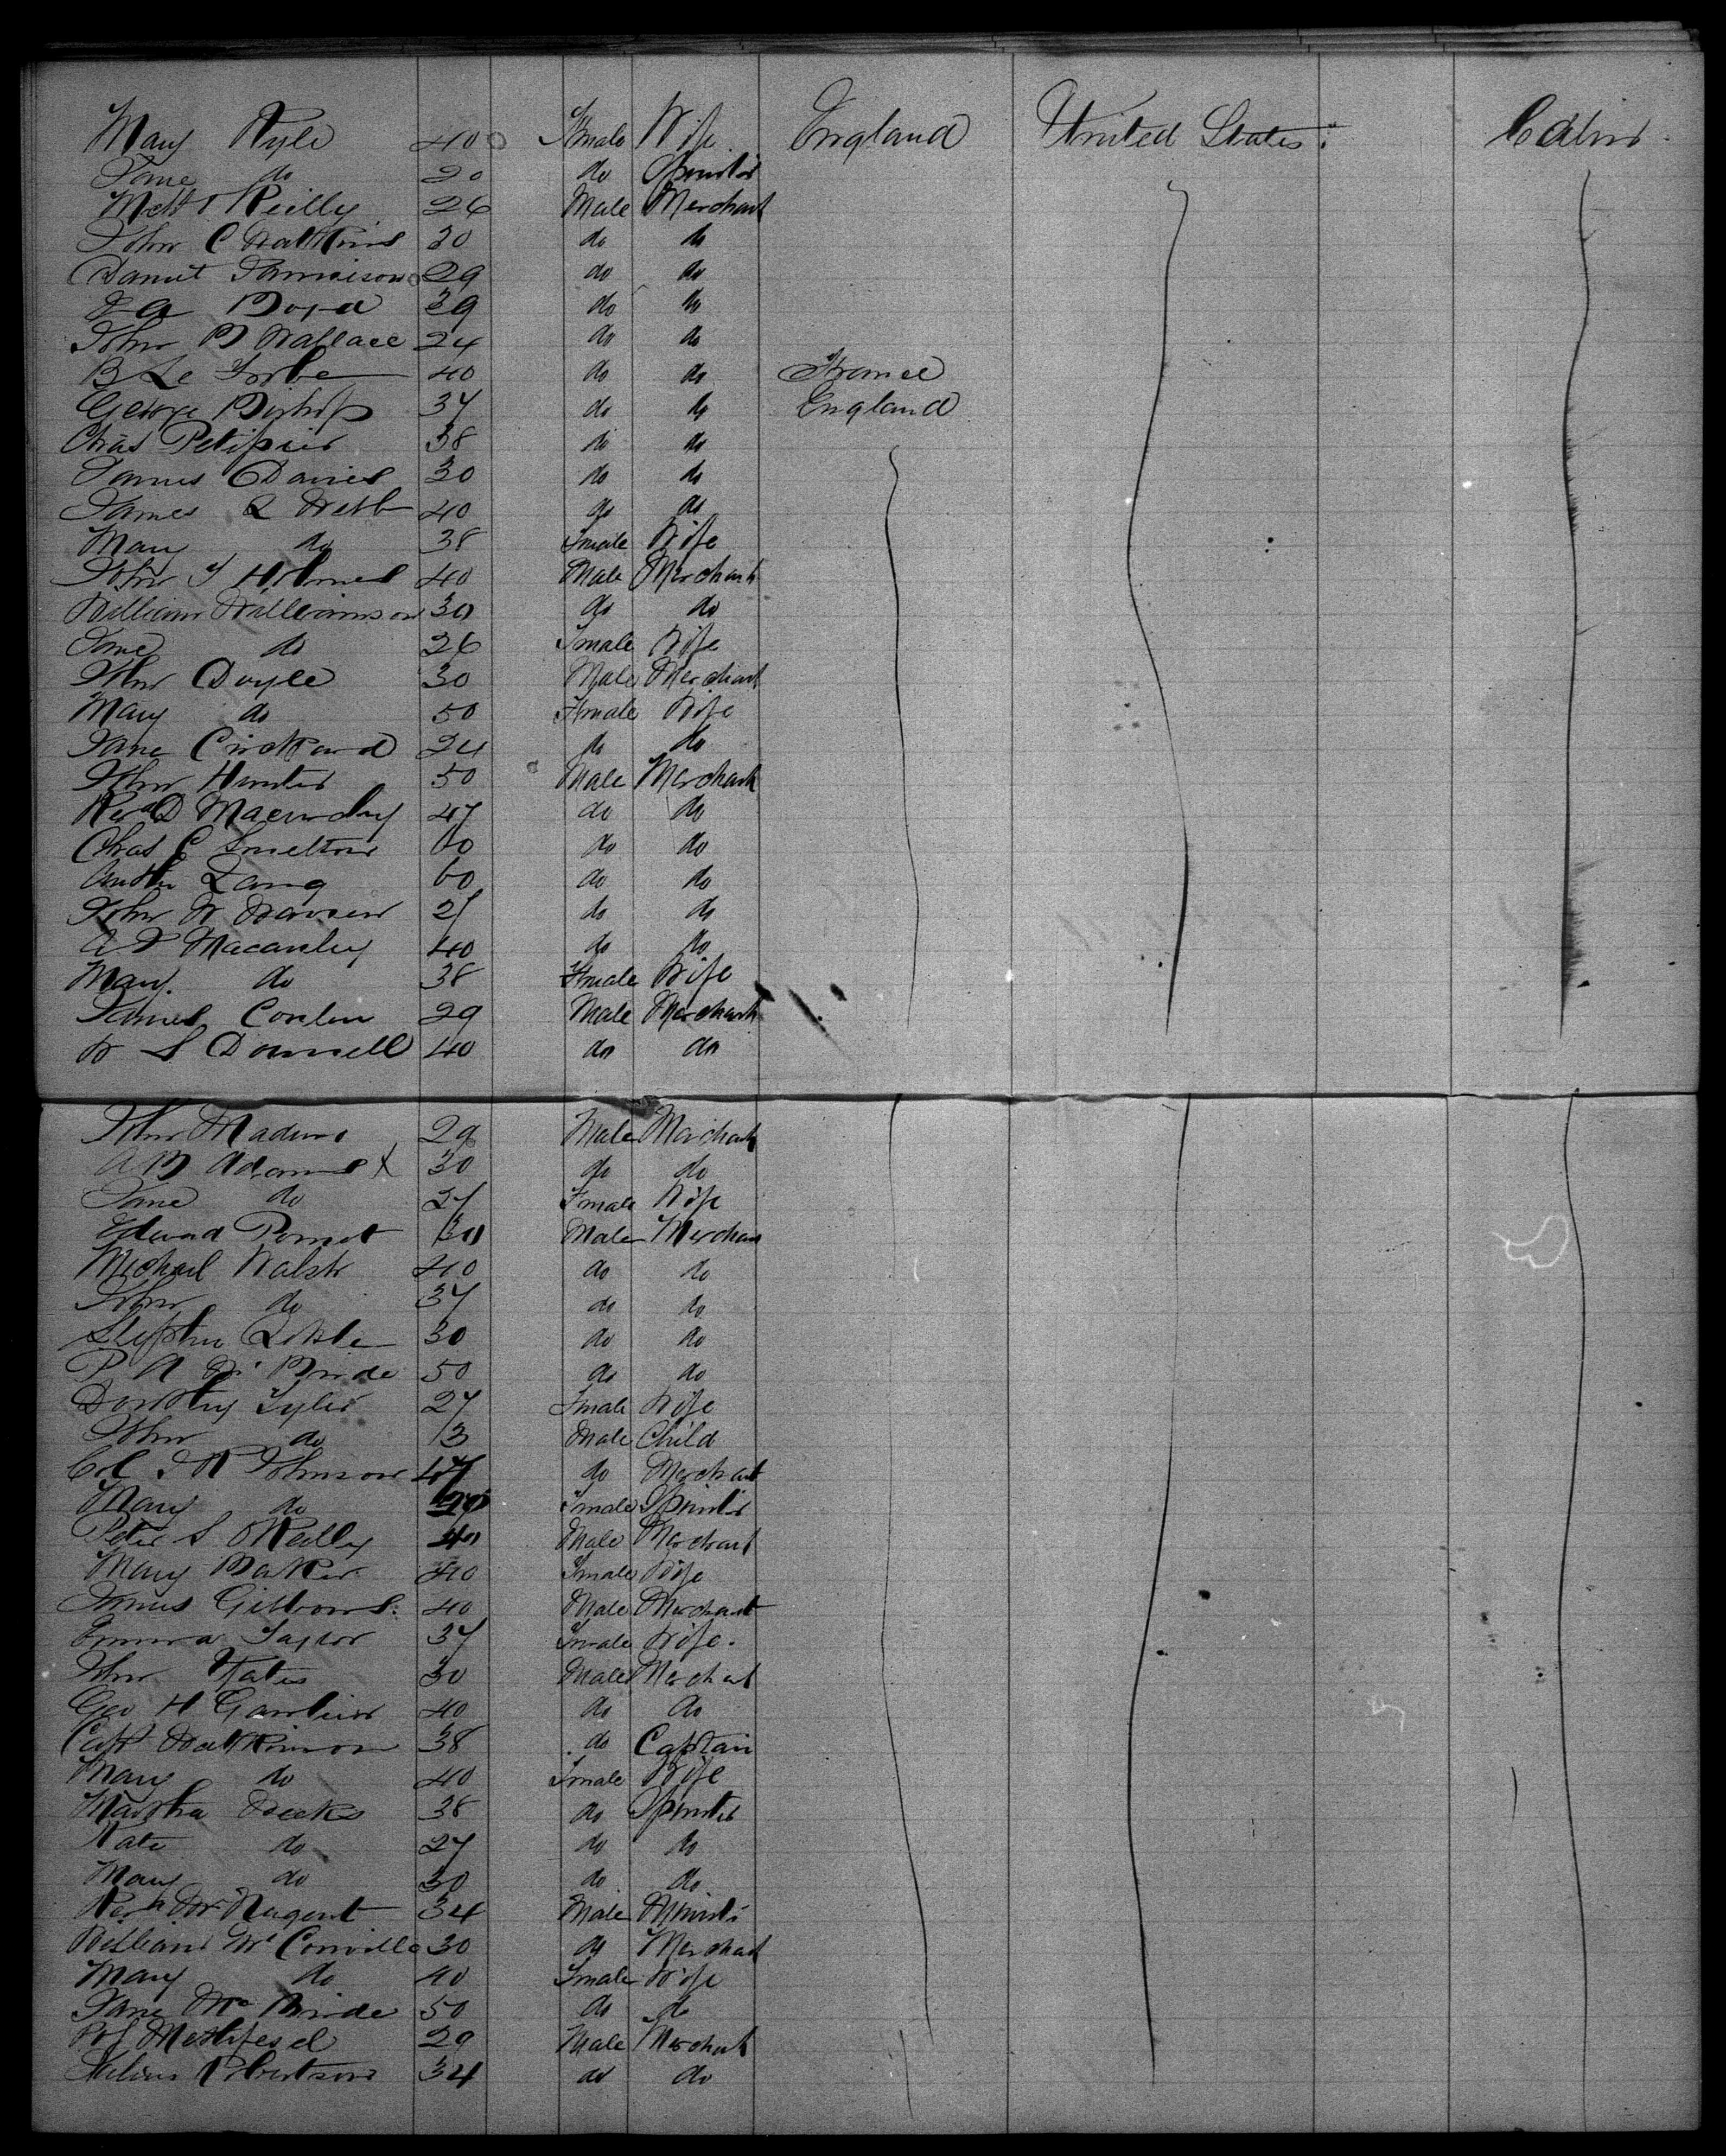 Mary Kyle 40 Female Wife England United States Cabin
Jane do 20 do Spinster
Matt Reilly 26 Male Merchant
John C Watkins 30 do do
Daniel Jamaison 29 do do
Boyd 39 do do
John B Wallace 24 do do
B Le 40 do do France
George Bishop 37 do do England
Chas 38 do do
James Davies 30 do do
James L Webb 40 do do
Mary do 38 Female Wife
John T Holmes 40 Male Merchant
William Williamson 30 do do
Jane do 26 Female Wife
John Doyle 30 Male Merchant
Mary do 50 Female Wife
Jane 24 do do
John Hunter 50 Male Merchant
Revd D 47 do do
Chas C 60 do do
Lang 60 do do
John W 27 do do
A J Macauley 40 do do
Mary do 38 Female Wife
James Conlin 29 Male Merchant
W S Donnell 40 do do
John 29 Male Merchant
A B Adams X 30 do do
Jane do 27 Female Wife
Edward 30 Male Merchan
Michael Walsh 40 do do
John do 37 do do
Stephen Little 30 do do
P A Mc Bride 50 do do
Dorothy Tyler 27 Female Wife
John do 13 Male Child
Col J W Johnson 47 do Merchant
Mary do Female Spinster
Peter S OReilly 40 Male Merchant
Mary Barker 40 Female Wife
James Gibbons 40 Male Merchant
Emma Taylor 37 Female Wife
John Yates 30 Male Merchant
Geo H 40 do do
Capt Watkinson 38 do Captain
Mary do 40 Female Wife
Martha Weeks 38 do Spinster
Kate do 27 do do
Mary do 30 do do
Nugent 34 Male Minister
William Mc Conville 30 do Merchant
Mary do 40 Female Wife
Jane Mc Bride 50 do do
29 Male Merchant
Julius Robertson 34 do do